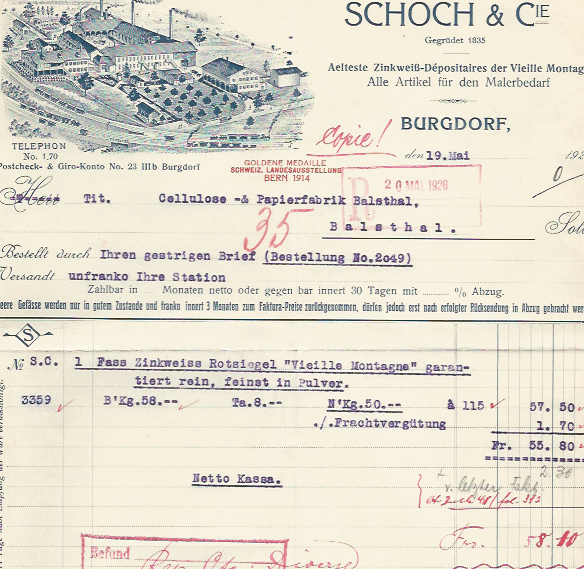 SCHOCH & CIE
Gegründet 1835
Aelteste Zinkweiß-Dépositaires der Vieille Montag
Alle Artikel für den Malerbedarf
TELEPHON
No. 1.70
Postcheck- & Giro-Konto No. 23 IIIb Burgdorf
Copie!
BURGDORF,
den 19.Mai 192
GOLDENE MEDAILLE
SCHWEIZ. LANDESAUSSTELLUNG
BERN 1914
R 20 MAI 1926
0
Herr Tit. Cellulose -& Papierfabrik Balsthal,
35
Balsthal.
Bestellt durch Ihren gestrigen Brief (Bestellung No.2049)
Versandt unfranko Ihre Station
Zahlbar in Monaten netto oder gegen bar innert 30 Tagen mit % Abzug.
eere Gefässe werden nur in gutem Zustande und franko innert 3 Monaten zum Faktura-Preise zurückgenommen, dürfen jedoch erst nach erfolgter Rücksendung in Abzug gebracht wer
S
No S.C. 1 Fass Zinkweiss Rotsiegel "Vieille Montagne" garan-
tiert rein, feinst in Pulver.
3359 B'Kg.58.-- Ta.8.-- N'Kg.50.-- à 115 57. 50
./.Frachtvergütung 1. 70
Fr. 55. 80
+ 2.30
Netto Kassa.
v. letzter Fakt.
Frs. 58.10
Befund
Diverse